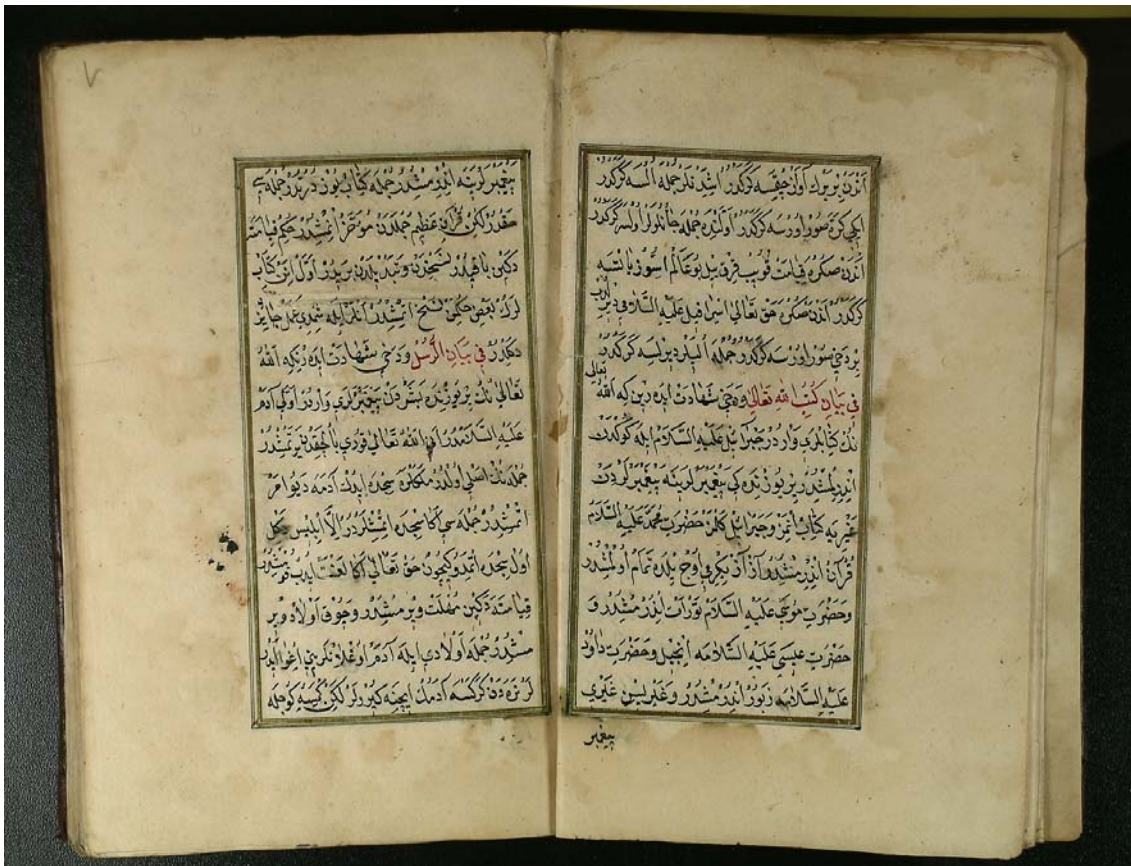 اَنْدَنْ بِرْ يردن آوَازْ چِقْسَه كَرَكْدُرْ اِشِدَنْلَرْ جُمْلَه اُلْسَه كَرَكْدُرْ
اِيكِي كَرَّه صُورْ اُورُسَه كَرَكْدُرْ اَوَّلْنْدَه جُمْلَه جَانْلُولَرْ اُولْسَه كَرَكْدُرْ
اَنْدَنْ صَكْرَه قِيَامَتْ قُوپُبْ قِرْقْ يِيلْ بُو عَالَمْ اِسُّوزْ يَاتْسَه
كَرَكْدُرْ اَنْدَنْ صَكْرَه حَقْ تَعَالَى اِسْرَافِيلْ عَلَيْهِ السَّلَامِي دِيرِ
بِرْ دَخِي صُورْ اُورُسَه كَرَكْدُرْ جُمْلَه دِيرِلْسَه كَرَكْدُرْ
فِي بَيَانِ كُتُبِ اللهِ تَعَالَى وَدَخِي شَهَادَتْ اِيدَه دِينْ كِه اَللهُ تعالى
نُكْ كِتَابْلَرِي وَارْدُرْ جَبْرَائِيلْ عَلَيْهِ السَّلَامْ اِيلَه كُوكْدَنْ
اِنْدِرِلْمِشْدُرْ يِرْ يُوزِنْدَه كِي پَيْغَمْبَرْلَرِينَه پَيْغَمْبَرْلَرْدَنْ
غَيْرِيَه كِتَابْ اِنْمَزْ وَجَبْرَائِيلْ كَلْمَزْ حَضْرَتِ مُحَمَّدْ عَلَيْهِ السَّلَامْ
قُرْآنْ اِنْدِرْمِشْدُرْ آزْ آزْ يِكِرْمِي اُوچْ يِيلْدَه تَمَامْ اُولْمِشْدُرْ
وَحَضْرَتِ مُوسَى عَلَيْهِ السَّلَامْ تَوْرَاتْ اِنْدِرْمِشْدُرْ وَ
حَضْرَتِ عِيسَى عَلَيْهِ السَّلَامَه اِنْجِيلْ وَحَضْرَتِ دَاوُدْ
عَلَيْهِ السَّلَامَه زَبُورْ اِنْدِرْمِشْدُرْ وَغَيْرِيسِنْ غَيْرِي
پيغمبر
پَيْغَمْبَرْلَرِينَه اِنْدِرْمِشْدُرْ جُمْلَه كِتَابْ يُوزْ دُرْتْدُرْ جُمْلَه سِي
حَقْدُرْ لَكِنْ قُرْآنِ عَظِيمْ جُمْلَدَنْ مُؤَخَّرْ اِنْمِشْدُرْ حُكْمِ قِيَامَتَه
دَكِينْ بَاقِيدُرْ نَسْخِدَنْ وَتَبْدِيلْدَنْ بَرِيدُرْ اَوَّلْ اِنَنْ كِتَابْ
لَرُكْ بَعْضِ حُكْمِنْ نَسْخْ اِتْمِشْدُرْ اَنْلَرْ اِيلَه شِمْدِي عَمَلْ جَائِزْ
دَكُلْدُرْ فِي بَيَانِ الرُّسُلِ وَدَخِي شَهَادَتْ اِيدَه رِزْكِه اَللهُ
تَعَالَى نُكْ يِرْ يُوزِنْدَه بَشَرْدَنْ پَيْغَمْبَرْلَرِي وَارْدُرْ اَوَّلِي آدَمْ
عَلَيْهِ السَّلَامْدُرْ اَنِي اَللهُ تَعَالَى قُورِي بَالْچِقْدَنْ يَرَتْمِشْدُرْ
جُمْلَه نُكْ اَصْلِي اُولْدُرْ مَلَكْلَرَه سَجْدَه اِيدُكْ آدَمَه دِيُو اَمْرْ
اِتْمِشْدُرْ جُمْلَه سِي اَكَا سَجْدَه اِتْمِشْلَرْدُرْ اِلَّا اِبْلِيسْ دَكُلْ
اُولْ سَجْدَه اِتْمَدُوكِيچُونْ حَقْ تَعَالَى اَكَا لَعْنَتْ اِيدُبْ قُومِشْدُرْ
قِيَامَتَه دَكِينْ مُهْلَتْ وِيرْمِشْدُرْ وَچُوقْ اَوْلَادْ وِيرْ
مِشْدُرْ جُمْلَه اَوْلَادِي اِيلَه آدَمْ اُوغْلَانْلَرِينِي اِغْوَا اِيدَرْ
لَرْ كِمْسَه آدَمُكْ اِيچِينَه كِيرَرْلَرْ لَكِنْ كِمْسَيِي كُوجِلَه